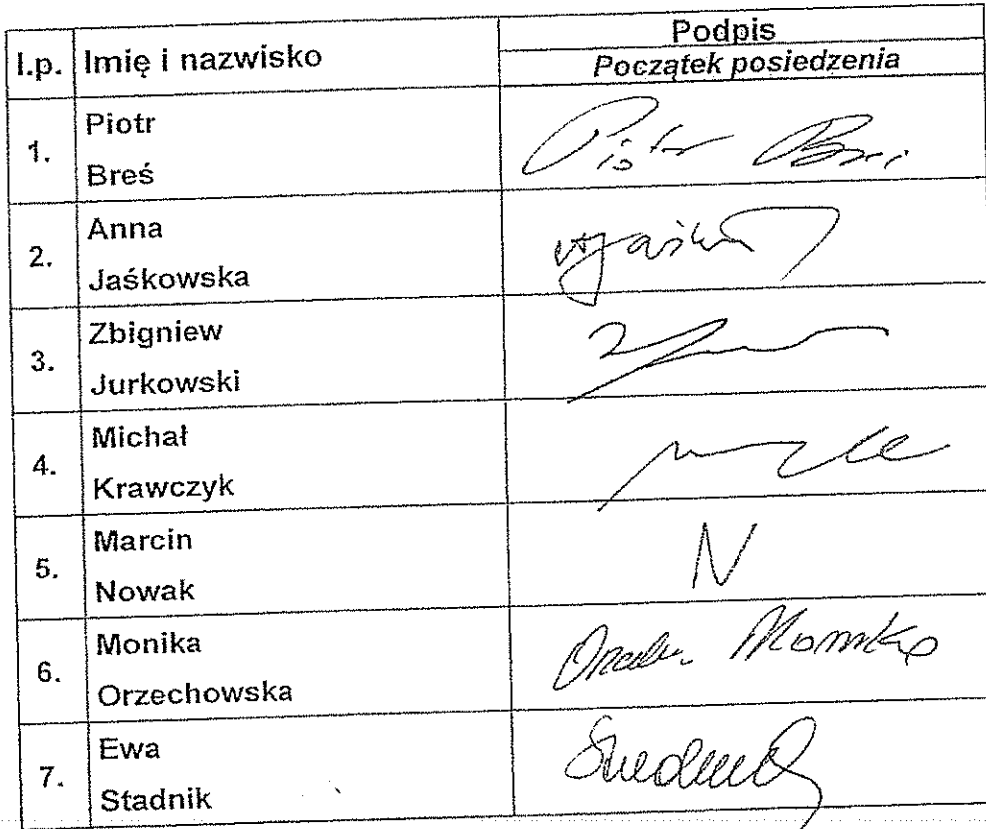 l.p. Imię i nazwisko Podpis
Początek posiedzenia
1. Piotr
Breś
Piotr Breś
2. Anna
Jaśkowska
3. Zbigniew
Jurkowski
4. Michał
Krawczyk
5. Marcin
Nowak
N
6. Monika
Orzechowska
Monika
7. Ewa
Stadnik